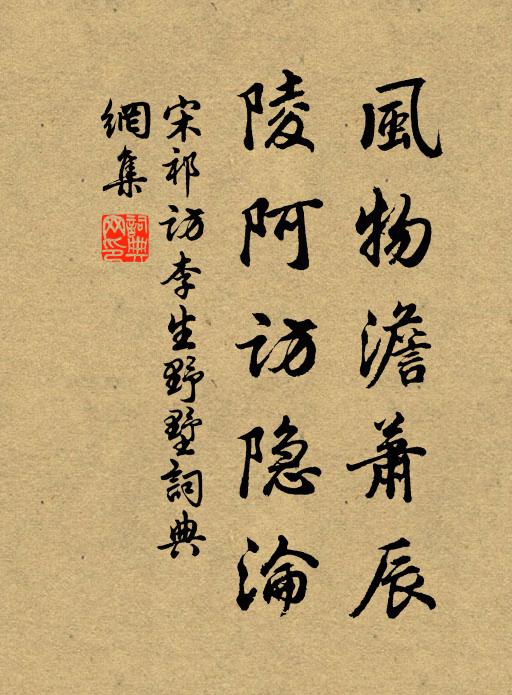 風物澹蕭辰
陵阿访隐淪
宋祁访李生野墅詞典
網集
詞典網印